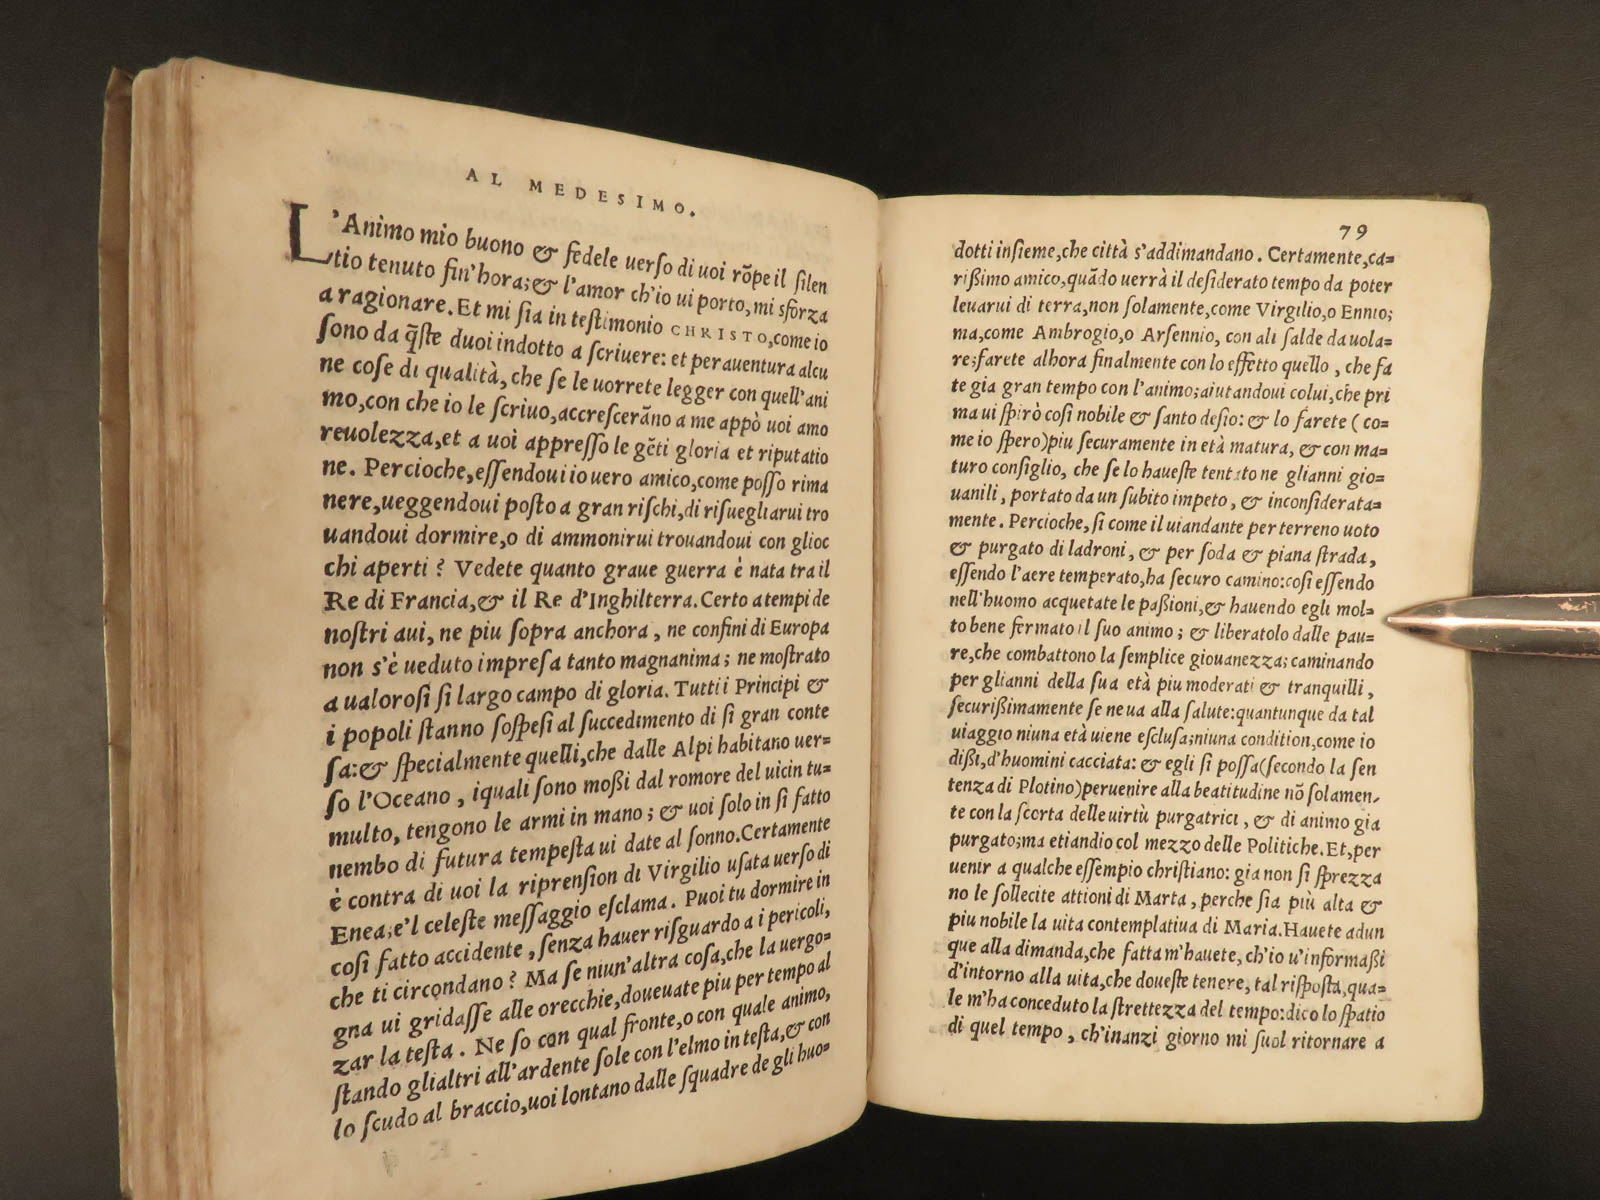 AL MEDESIMO.
L'Animo mio buono & fedele uerſo di uoi rõpe il ſilen
tio tenuto fin'hora; & l'amor ch'io ui porto, mi sforza
a ragionare. Et mi ſia in teſtimonio CHRISTO, come io
ſono da q̃ſte duoi indotto a ſcriuere: et per auentura alcu
ne coſe di qualità, che ſe le uorrete legger con quell'ani
mo, con che io le ſcriuo, accreſcerãno a me appò uoi amo
reuolezza, et a uoi appreſſo le gẽti gloria et riputatio
ne. Percioche, eſſendoui io uero amico, come poſſo rima
nere, ueggendoui poſto a gran riſchi, di riſuegliarui tro
uandoui dormire, o di ammonirui trouandoui con glioc
chi aperti? Vedete quanto graue guerra è nata tra il
Re di Francia, & il Re d'Inghilterra. Certo a tempi de
noſtri aui, ne piu ſopra anchora, ne confini di Europa
non s'è ueduto impreſa tanto magnanima; ne moſtrato
a ualoroſi ſi largo campo di gloria. Tutti i Principi &
i popoli ſtanno ſoſpeſi al ſuccedimento di ſi gran conte
ſa: & ſpecialmente quelli, che dalle Alpi habitano uer=
ſo l'Oceano, iquali ſono moßi dal romore del uicin tu=
multo, tengono le armi in mano; & uoi ſolo in ſi fatto
nembo di futura tempeſta ui date al ſonno. Certamente
è contra di uoi la riprenſion di Virgilio uſata uerſo di
Enea; e'l celeſte meſſaggio eſclama. Puoi tu dormire in
coſi fatto accidente, ſenza hauer riſguardo a i pericoli,
che ti circondano? Ma ſe niun'altra coſa, che la uergo=
gna ui gridaſſe alle orecchie, doueuate piu per tempo al
zar la teſta. Ne ſo con qual fronte, o con quale animo,
ſtando glialtri all'ardente ſole con l'elmo in teſta, & con
lo ſcudo al braccio, uoi lontano dalle ſquadre de gli huo=
79
dotti inſieme, che città s'addimandano. Certamente, ca=
rißimo amico, quãdo uerrà il deſiderato tempo da poter
leuarui di terra, non ſolamente, come Virgilio, o Ennio;
ma, come Ambrogio, o Arſennio, con ali ſalde da uola=
re; farete alhora finalmente con lo effetto quello, che fa
te gia gran tempo con l'animo; aiutandoui colui, che pri
ma ui ſpirò coſi nobile & ſanto deſio: & lo farete (co=
me io ſpero) piu ſecuramente in età matura, & con ma=
turo conſiglio, che ſe lo haueſte tentato ne glianni gio=
uanili, portato da un ſubito impeto, & inconſiderata=
mente. Percioche, ſi come il uiandante per terreno uoto
& purgato di ladroni, & per ſoda & piana ſtrada,
eſſendo l'aere temperato, ha ſecuro camino: coſi eſſendo
nell'huomo acquetate le paßioni, & hauendo egli mol=
to bene fermato il ſuo animo; & liberatolo dalle pau=
re, che combattono la ſemplice giouanezza; caminando
per glianni della ſua età piu moderati & tranquilli,
ſecurißimamente ſe ne ua alla ſalute: quantunque da tal
uiaggio niuna età uiene eſcluſa; niuna condition, come io
dißi, d'huomini cacciata: & egli ſi poſſa (ſecondo la ſen
tenza di Plotino) peruenire alla beatitudine nõ ſolamen,
te con la ſcorta delle uirtù purgatrici, & di animo gia
purgato; ma etiandio col mezzo delle Politiche. Et, per
uenir a qualche eſſempio chriſtiano: gia non ſi ſprezza
no le ſollecite attioni di Marta, perche ſia più alta &
piu nobile la uita contemplatiua di Maria. Hauete adun
que alla dimanda, che fatta m'hauete, ch'io u'informaßi
d'intorno alla uita, che doueſte tenere, tal riſpoſta, qua=
le m'ha conceduto la ſtrettezza del tempo: dico lo ſpatio
di quel tempo, ch'inanzi giorno mi ſuol ritornare a